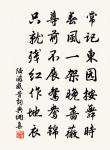 常記東園按舞時
春風一架晚薔薇
尊前不展鴛鴦錦
只就殘紅作地衣
陸游感昔